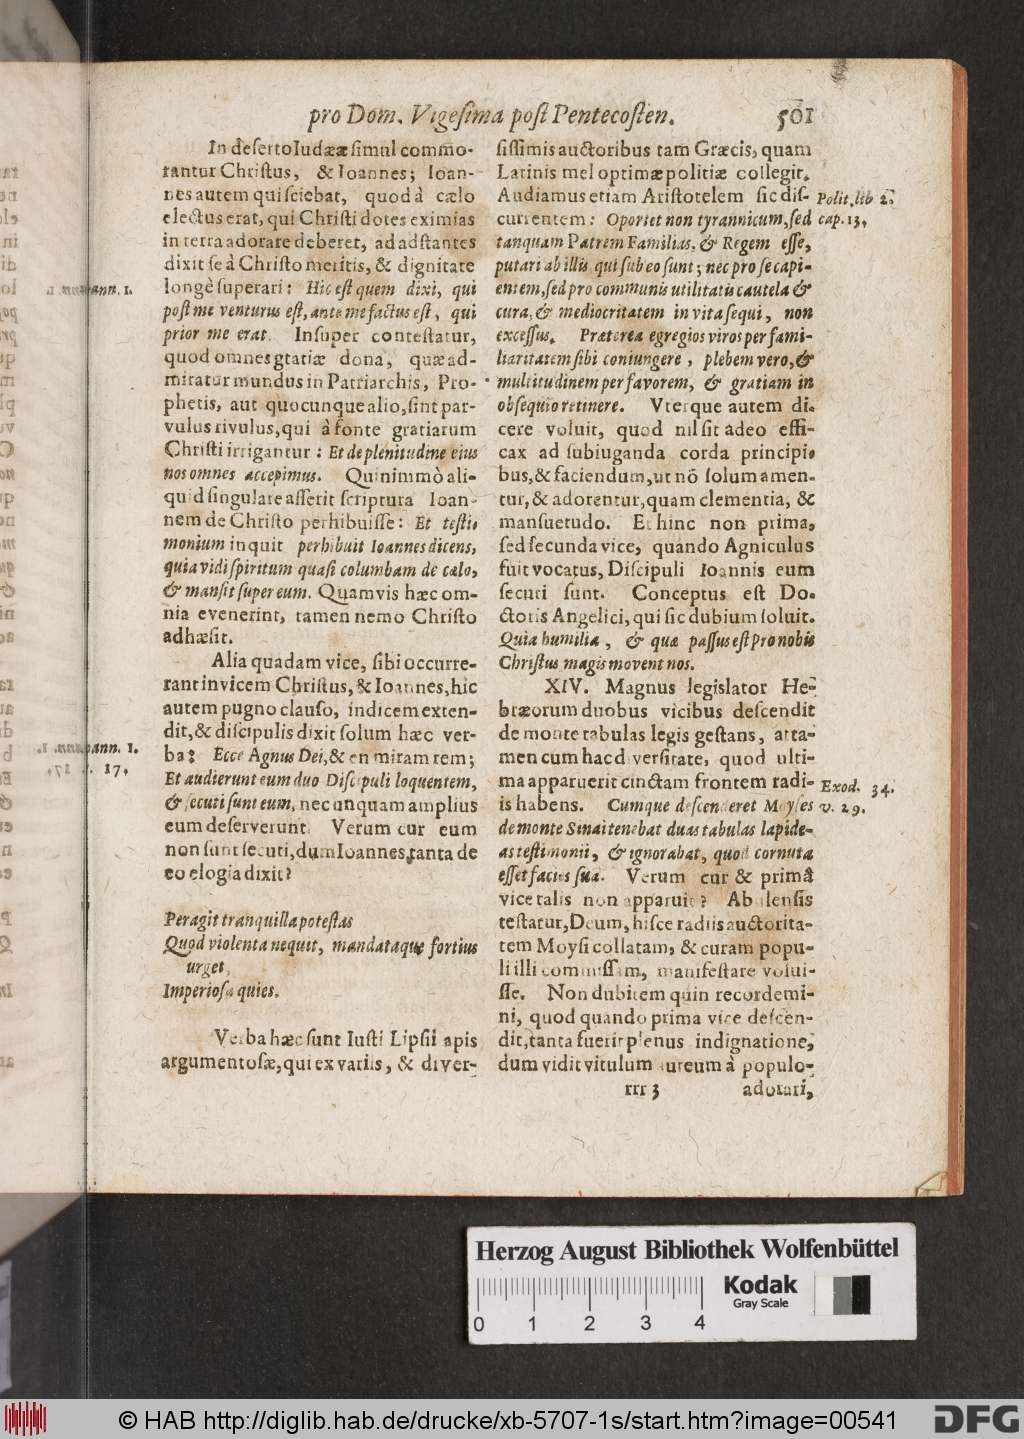 pro Dom. Vigesima post Pentecosten. 501
In deserto Iudææ simul commo-
rantur Christus, & Ioannes; Ioan-
nes autem qui sciebat, quod à cælo
electus erat, qui Christi dotes eximias
in terra adorare deberet, ad adstantes
dixit se à Christo meritis, & dignitate
longè superari: Hic est quem dixi, qui
post me venturus est, ante me factus est, qui
prior me erat. Insuper contestatur,
quod omnes gratiæ dona, quæ ad-
miratur mundus in Patriarchis, Pro-
phetis, aut quocunque alio, sint par-
vulus rivulus, qui à fonte gratiarum
Christi irrigantur: Et de plenitudine eius
nos omnes accepimus. Quinimmò ali-
quid singulare asserit scriptura Ioan-
nem de Christo perhibuisse: Et testi-
monium inquit perhibuit Ioannes dicens,
quia vidi spiritum quasi columbam de cælo,
& mansit super eum. Quamvis hæc om-
nia evenerint, tamen nemo Christo
adhæsit.
Alia quadam vice, sibi occurre-
rant invicem Christus, & Ioannes, hic
autem pugno clauso, indicem exten-
dit, & discipulis dixit solum hæc ver-
ba: Ecce Agnus Dei, & en miram rem;
Et audierunt eum duo Discipuli loquentem,
& secuti sunt eum, nec unquam amplius
eum deserverunt. Verum cur eum
non sunt secuti, dum Ioannes, tanta de
eo elogia dixit?
Peragit tranquilla potestas
Quod violenta nequit, mandataque fortius
urget,
Imperiosa quies.
Verba hæc sunt Iusti Lipsii apis
argumentosæ, qui ex variis, & diver-
ann. 1.
ann. 1.
17.
sissimis auctoribus tam Græcis, quam
Latinis mel optimæ politiæ collegit.
Audiamus etiam Aristotelem sic dis-
currentem: Oportet non tyrannicum, sed
tanquam Patrem Familias, & Regem esse,
putari ab illis qui sub eo sunt; nec pro se capi-
entem, sed pro communis utilitatis cautela &
cura, & mediocritatem in vita sequi, non
excessus. Præterea egregios viros per fami-
liaritatem sibi coniungere, plebem vero, &
multitudinem per favorem, & gratiam in
obsequio retinere. Vterque autem di-
cere voluit, quod nil sit adeo effi-
cax ad subiuganda corda principi-
bus, & faciendum, ut nō solum amen-
tur, & adorentur, quam clementia, &
mansuetudo. Et hinc non prima,
sed secunda vice, quando Agniculus
fuit vocatus, Discipuli Ioannis eum
secuti sunt. Conceptus est Do-
ctoris Angelici, qui sic dubium soluit.
Quia humilia, & quæ passus est pro nobis
Christus magis movent nos.
XIV. Magnus legislator He-
bræorum duobus vicibus descendit
de monte tabulas legis gestans, atta-
men cum hac diversitate, quod ulti-
ma apparuerit cinctam frontem radi-
is habens. Cumque descenderet Moyses
de monte Sinai tenebat duas tabulas lapide-
as testimonii, & ignorabat, quod cornuta
esset facies sua. Verum cur & primâ
vice talis non apparuit? Abulensis
testatur, Deum, hisce radiis auctorita-
tem Moysi collatam, & curam popu-
li illi commissam, manifestare volui-
sse. Non dubitem quin recordemi-
ni, quod quando prima vice descen-
dit, tanta fuerit plenus indignatione,
dum vidit vitulum aureum à populo
rrr 3 adorari,
Polit. lib 2.
cap. 13.
Exod. 34.
v. 29.
Herzog August Bibliothek Wolfenbüttel
0 1 2 3 4
Kodak
Gray Scale
© HAB http://diglib.hab.de/drucke/xb-5707-1s/start.htm?image=00541
DFG